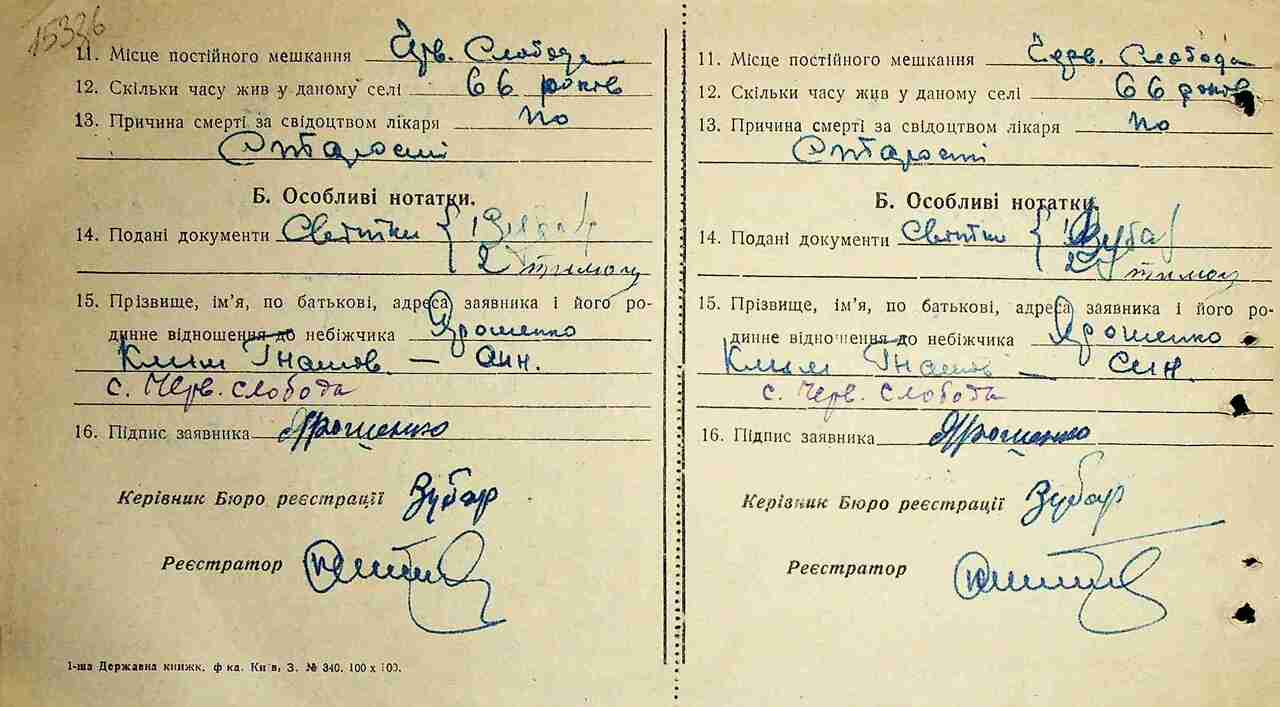 15336
11. Місце постійного мешкання Чрв. Слобода
12. Скільки часу жив у даному селі 66 років
13. Причина смерті за свідоцтвом лікаря по
Старості
Б. Особливі нотатки.
14. Подані документи Свідки { 1 Зубар
2 Тимош
15. Прізвище, ім'я, по батькові, адреса заявника і його ро-
динне відношення до небіжчика Ярошенко
Клим Гнатов — син.
с. Черв. слобода
16. Підпис заявника Ярошенко
Керівник Бюро реєстрації Зубар
Реєстратор
1-ша Державна книжк. ф-ка. Київ, З. № 340. 100 x 100.
11. Місце постійного мешкання Черв. Слобода
12. Скільки часу жив у даному селі 66 років
13. Причина смерті за свідоцтвом лікаря по
Старості
Б. Особливі нотатки.
14. Подані документи Свідки { 1 Зубар
2 Тимош
15. Прізвище, ім'я, по батькові, адреса заявника і його ро-
динне відношення до небіжчика Ярошенко
Клим Гнатов — син.
с. Черв. слобода
16. Підпис заявника Ярошенко
Керівник Бюро реєстрації Зубар
Реєстратор